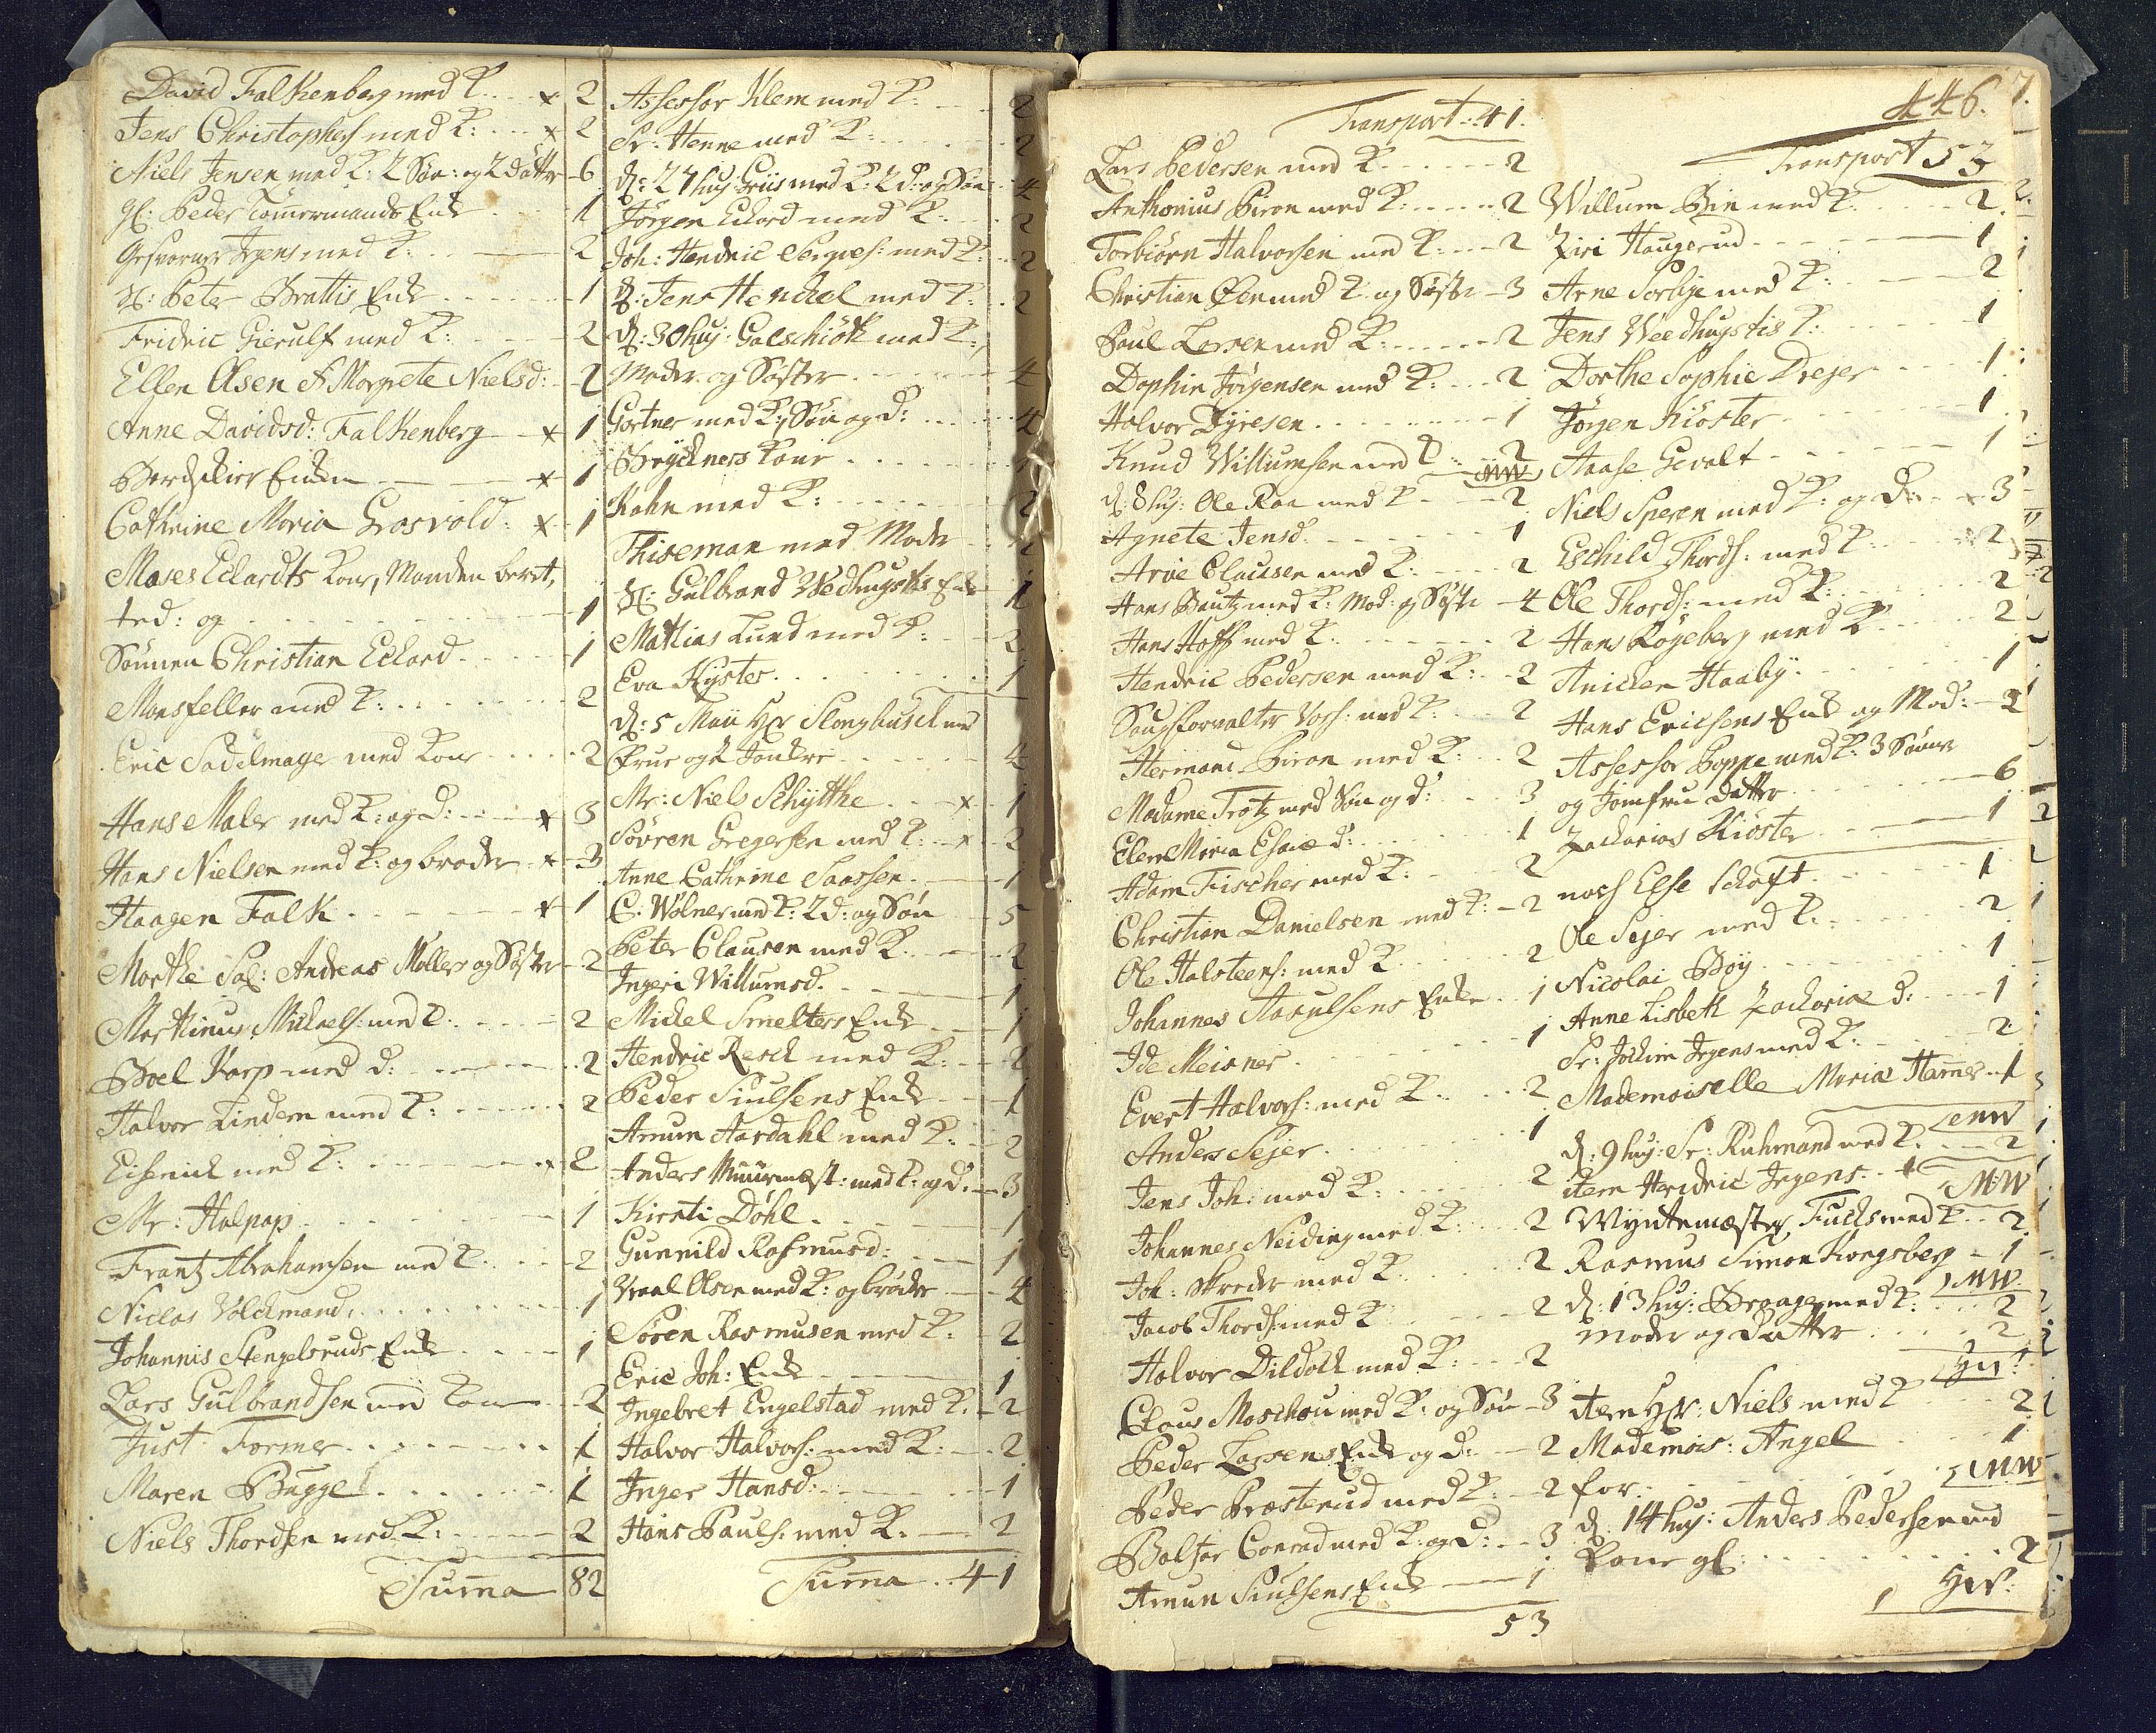 David Falkenberg med K. . . x 2
Jens Christophers med K: . . . x 2
Niels Jensen med K: 2 Søn: og 2 Døttr - 6
Sl: Peder Tömmermands Enke . . . 1
Jrgens med K: . . — 2
Sl: Peter Brattis Enke . . . . 1
Fridric Gierulf med K: . . . 2
Ellen Olsen & Margrete Nielsd: - 2
Anne Davidsd: Falkenberg - x 1
Enken — x 1
Cathrine Maria Grosvold: x . 1
Moses Eckardts Kone, Manden beret,
ted: og . . . . . . 1
Sönnen Christian Eckard . . . . 1
Monsfeller med K: . . . . . 2
Eric Sadelmager med Kone . . . . 2
Hans Maler med K: og D: . . . x 3
Hans Nielsen med K: og broder . . x - 3
Haagen Falk . . . . x 1
Marthe Sal: Andreas Möllers og Søster - 2
Martinus Mickels: med K: . . . . 2
Boel Karp med d: . . . . . 2
Halvor Lindem med K: . . . . . 2
Eisenick med K: . . . . . x 2
Mr: Halpap . . . . . 1
Frantz Abrahamsen med K. . . . 2
Niclas Volckmand . . . . . 1
Johannis Stengelsruds Enke . . . . 1
Lars Gulbrandsen med Kone . . 2
Just Former . . . . . . . 1
Maren Bugge . . . . . . 1
Niels Thordsen med K: . . . . 2
Suma 82
Assessor Klem med K: . . . 2
Sr: Henne med K: . . . . . 2
d: 27 huj: Griis med K: 2 d: og Søn . . 4
Jörgen Eckard med K . . . 2
Joh: Hendric med K: . . 2
Jens Henckel med K: . . 2
d: 30 huj: Galschiött med K:,
Moder og Søster . . . . 4
Gortner med K:, Søn og d: . . . . 4
Bryckners Kone . . . . .
Rahn med K: . . . . . 2
Thiseman med Moder . . 2
Sl: Gulbrand Wedhugstis Enke 1
Mathias Lund med K: . . . 2
Eva Kyster . . . . . . 1
d: 5 Maii Hr Slanghusch med
Frue og 2 Jonkre . . . . . 4
Mr: Niels Schytthe . . x . 1
Sören Gregersen med K: . x . 2
Anne Cathrine Saassen . — 1
C. Wölner med K: 2 d: og Søn — 5
Peter Clausen med K. . — . 2
Ingeri Willumsd. . . — 1
Mickel Smelters Enke . — 1
Hendric Resch med K: — 2
Peder Siulsens Enke . — 1
Amun Aasdahl med K: — 2
Anders Muurmæst: med K: og d: - 3
Kirsti Döhl . . . . . 1
Gunnild Rasmusd: . . — 1
Vraal Olsen med K: og brøder — 4
Sören Rasmusen med K: — 2
Eric Joh: Enke . . . 1
Ingebret Engelstad med K: - 2
Halvor Halvors: med K: — . 2
Inger Hansd: . . . . . 1
Hans Pauls: med K. — 2
Suma . . 41
Transport - 41.
Lars Pedersen med K . . . . . 2
Anthonius Piron med K: . . . . . 2
Torbiörn Halvorsen med K: . . . 2
Christian Öen med K: og Søster - 3
Poul Larsen med K: . . . . . 2
Dophin Jörgensen med K: . . . 2
Halvor Dyresen . . . . . . 1
Knud Willumsen med K . . 2
MW
d: 8 huj: Ole Raa med K . . — 2
Agnete Jensd: . . . . . 1
Arve Clausen med K: . . . . 2
Hans Bautz med K: Mod: og Søster - 4
Hans Hoff med K: . . . . . 2
Hendric Pedersen med K: - . 2
Saugforvalter Vors: med K: . . . 2
Hermand Piron med K: . . 2
Madame Trotz med Søn og d: . . . 3
Elen Maria Esaiæ d: . . . . 1
Adam Fischer med K: . . . 2
Christian Danielsen med K: - 2
Ole Halsteens: med K . . . . 2
Johannes Aasulsens Enke . . 1
Ide Meisner . . . . . 1
Evert Halvors: med K . . . 2
Anders Sejer . . . . . 1
Jens Joh: med K: . . . . . 2
Johannes Neiding med K: . . . 2
Joh: Skreder med K . . . . 2
Jacob Thords: med K . . . . 2
Halvor Dildoll med K: . . . 2
Claus Moschou med K: og Søn - 3
Peder Larsens Enke og d: — 2
Peder Præsterud med K: - 2
Baltzer Conrad med K: og d: . . 3
Amun Siulsens Enke — 1
53
446. 7.
Transport 53
Willum Bie med K: . . . 2
Ziri Haugerud . . . . 1
Arne Sorbye med K: . — 2
Jens Weedhugstis K: . . . 1
Dorthe Sophie Drejer . . . 1
Jörgen Kiöster . . . . . 1
Aase Gevalt . . . . . 1
Niels Speren med K: og d: - x 3
Eschild Thords: med K: . . . 2
Ole Thords: med K: . . . . 2
Hans Röyeberg med K . . . 2
Anicken Haaby . . . . . 1
Hans Ericsens Enke og Mod: - 2
Assessor Poppe med K: 3 Sönner
og Jomfru Datter . . . . . 6
Zacharias Kiöster . . . 1
noch Else Schaft . . . . 1
Ole Sejer med K: . . . . . 2
Nicolai Böy . . . . . 1
Anne Lisbeth Zachariæ d: . . . 1
Sr: Jochim Jrgens med K: . . . 2
Mademoiselle Maria Hamer . . 1
MW
d: 9 huj: Sr: Ruhmand med K. . . 2
item Hendric Jrgens . . 1
MW
Myntemæster Fuchs med K . . 2
Rasmus Simon Kongsberg - 1
MW.
d: 13 huj: Braage med K: . . . 2
Moder og Datter . . . . 2
item Hr: Niels med K . . . 2
Mademois: Angel . . . 1
for: . . . MW
d: 14 huj: Anders Pedersen med
Kone gl: . . . . . . 2